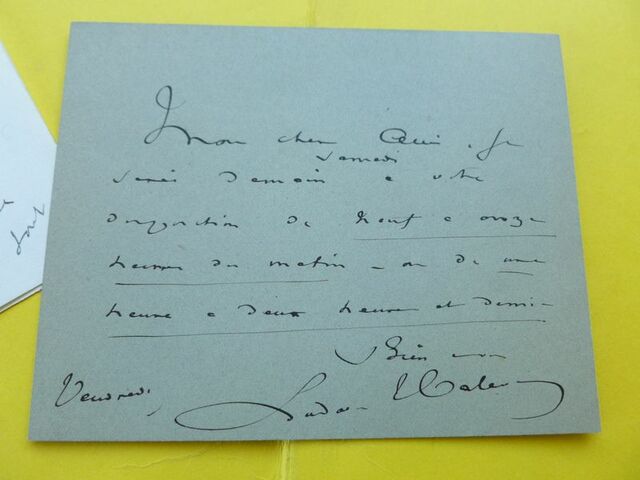 Mon cher ami, je
samedi
serai demain à votre
disposition de neuf à onze
heures du matin – ou de une
heure à deux heures et demie
Bien à vous
Vendredi, Ludovic Halévy